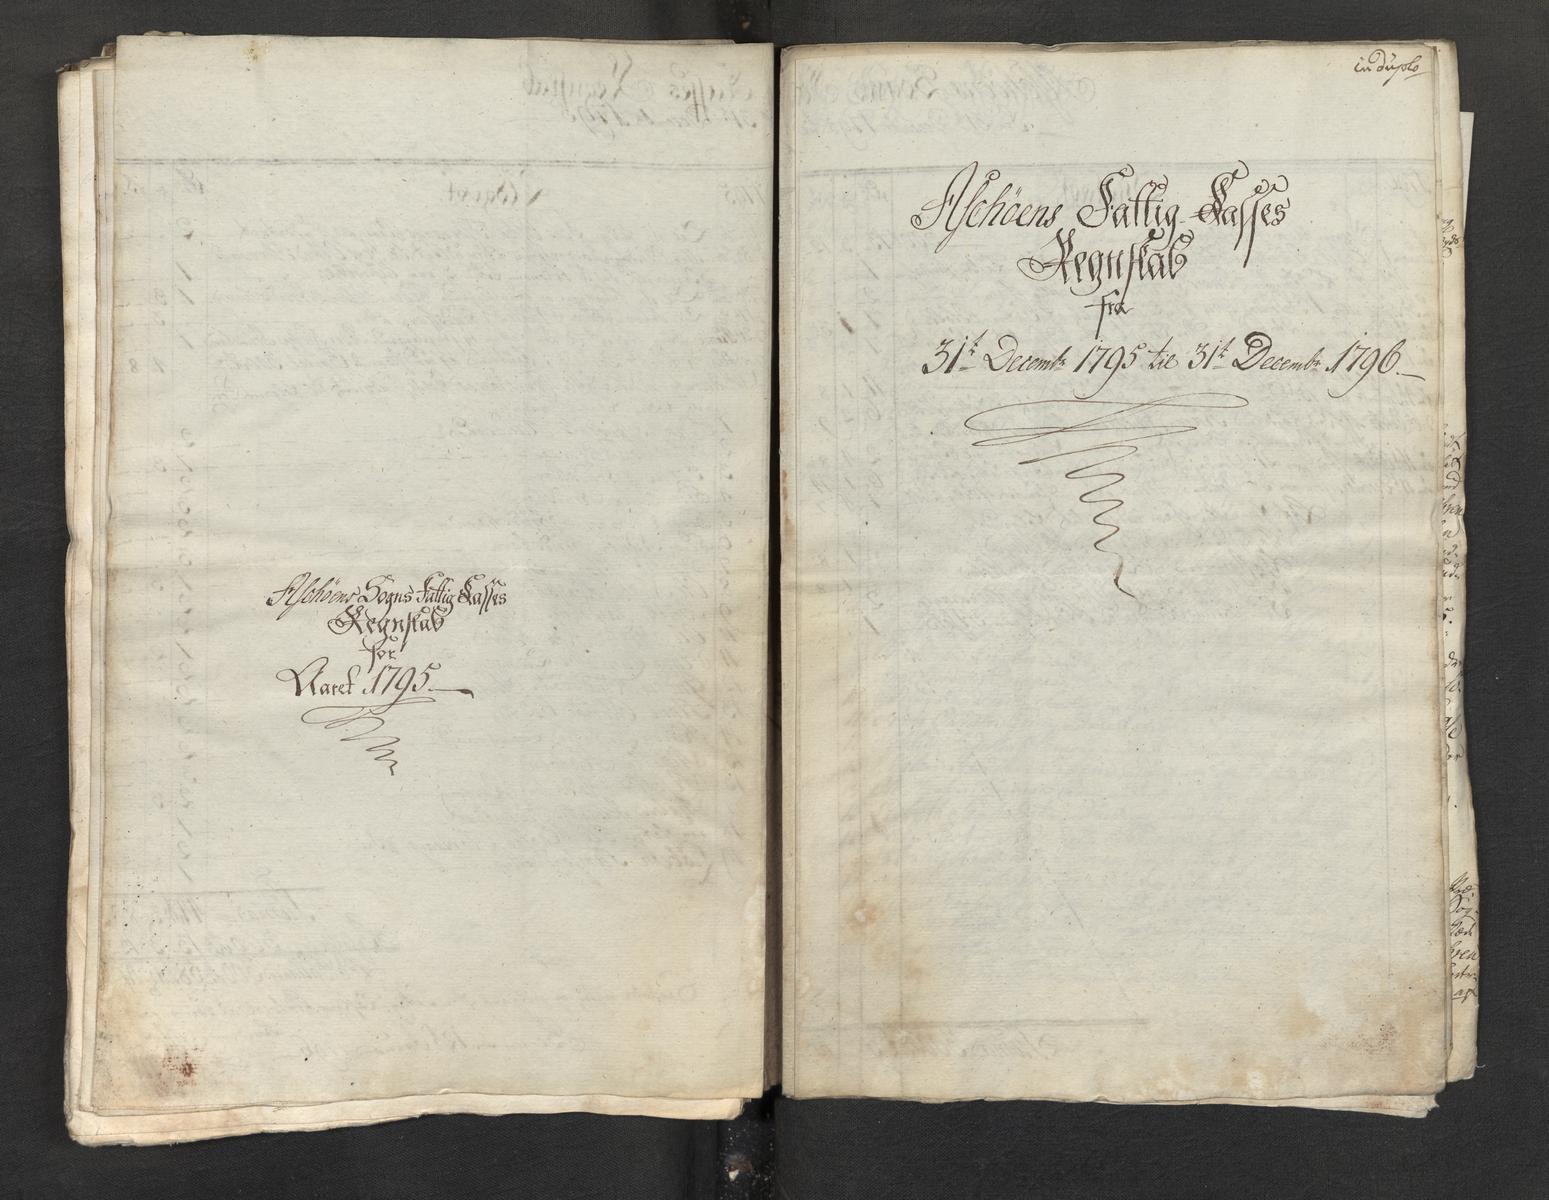 Aschöens Sogns Fattig Casses
Regnskab
for
Aaret 1795
in duplo
Aschöens Fattig-Casses
Regnskab
fra
31te Decembr 1795 til 31te Decembr 1796